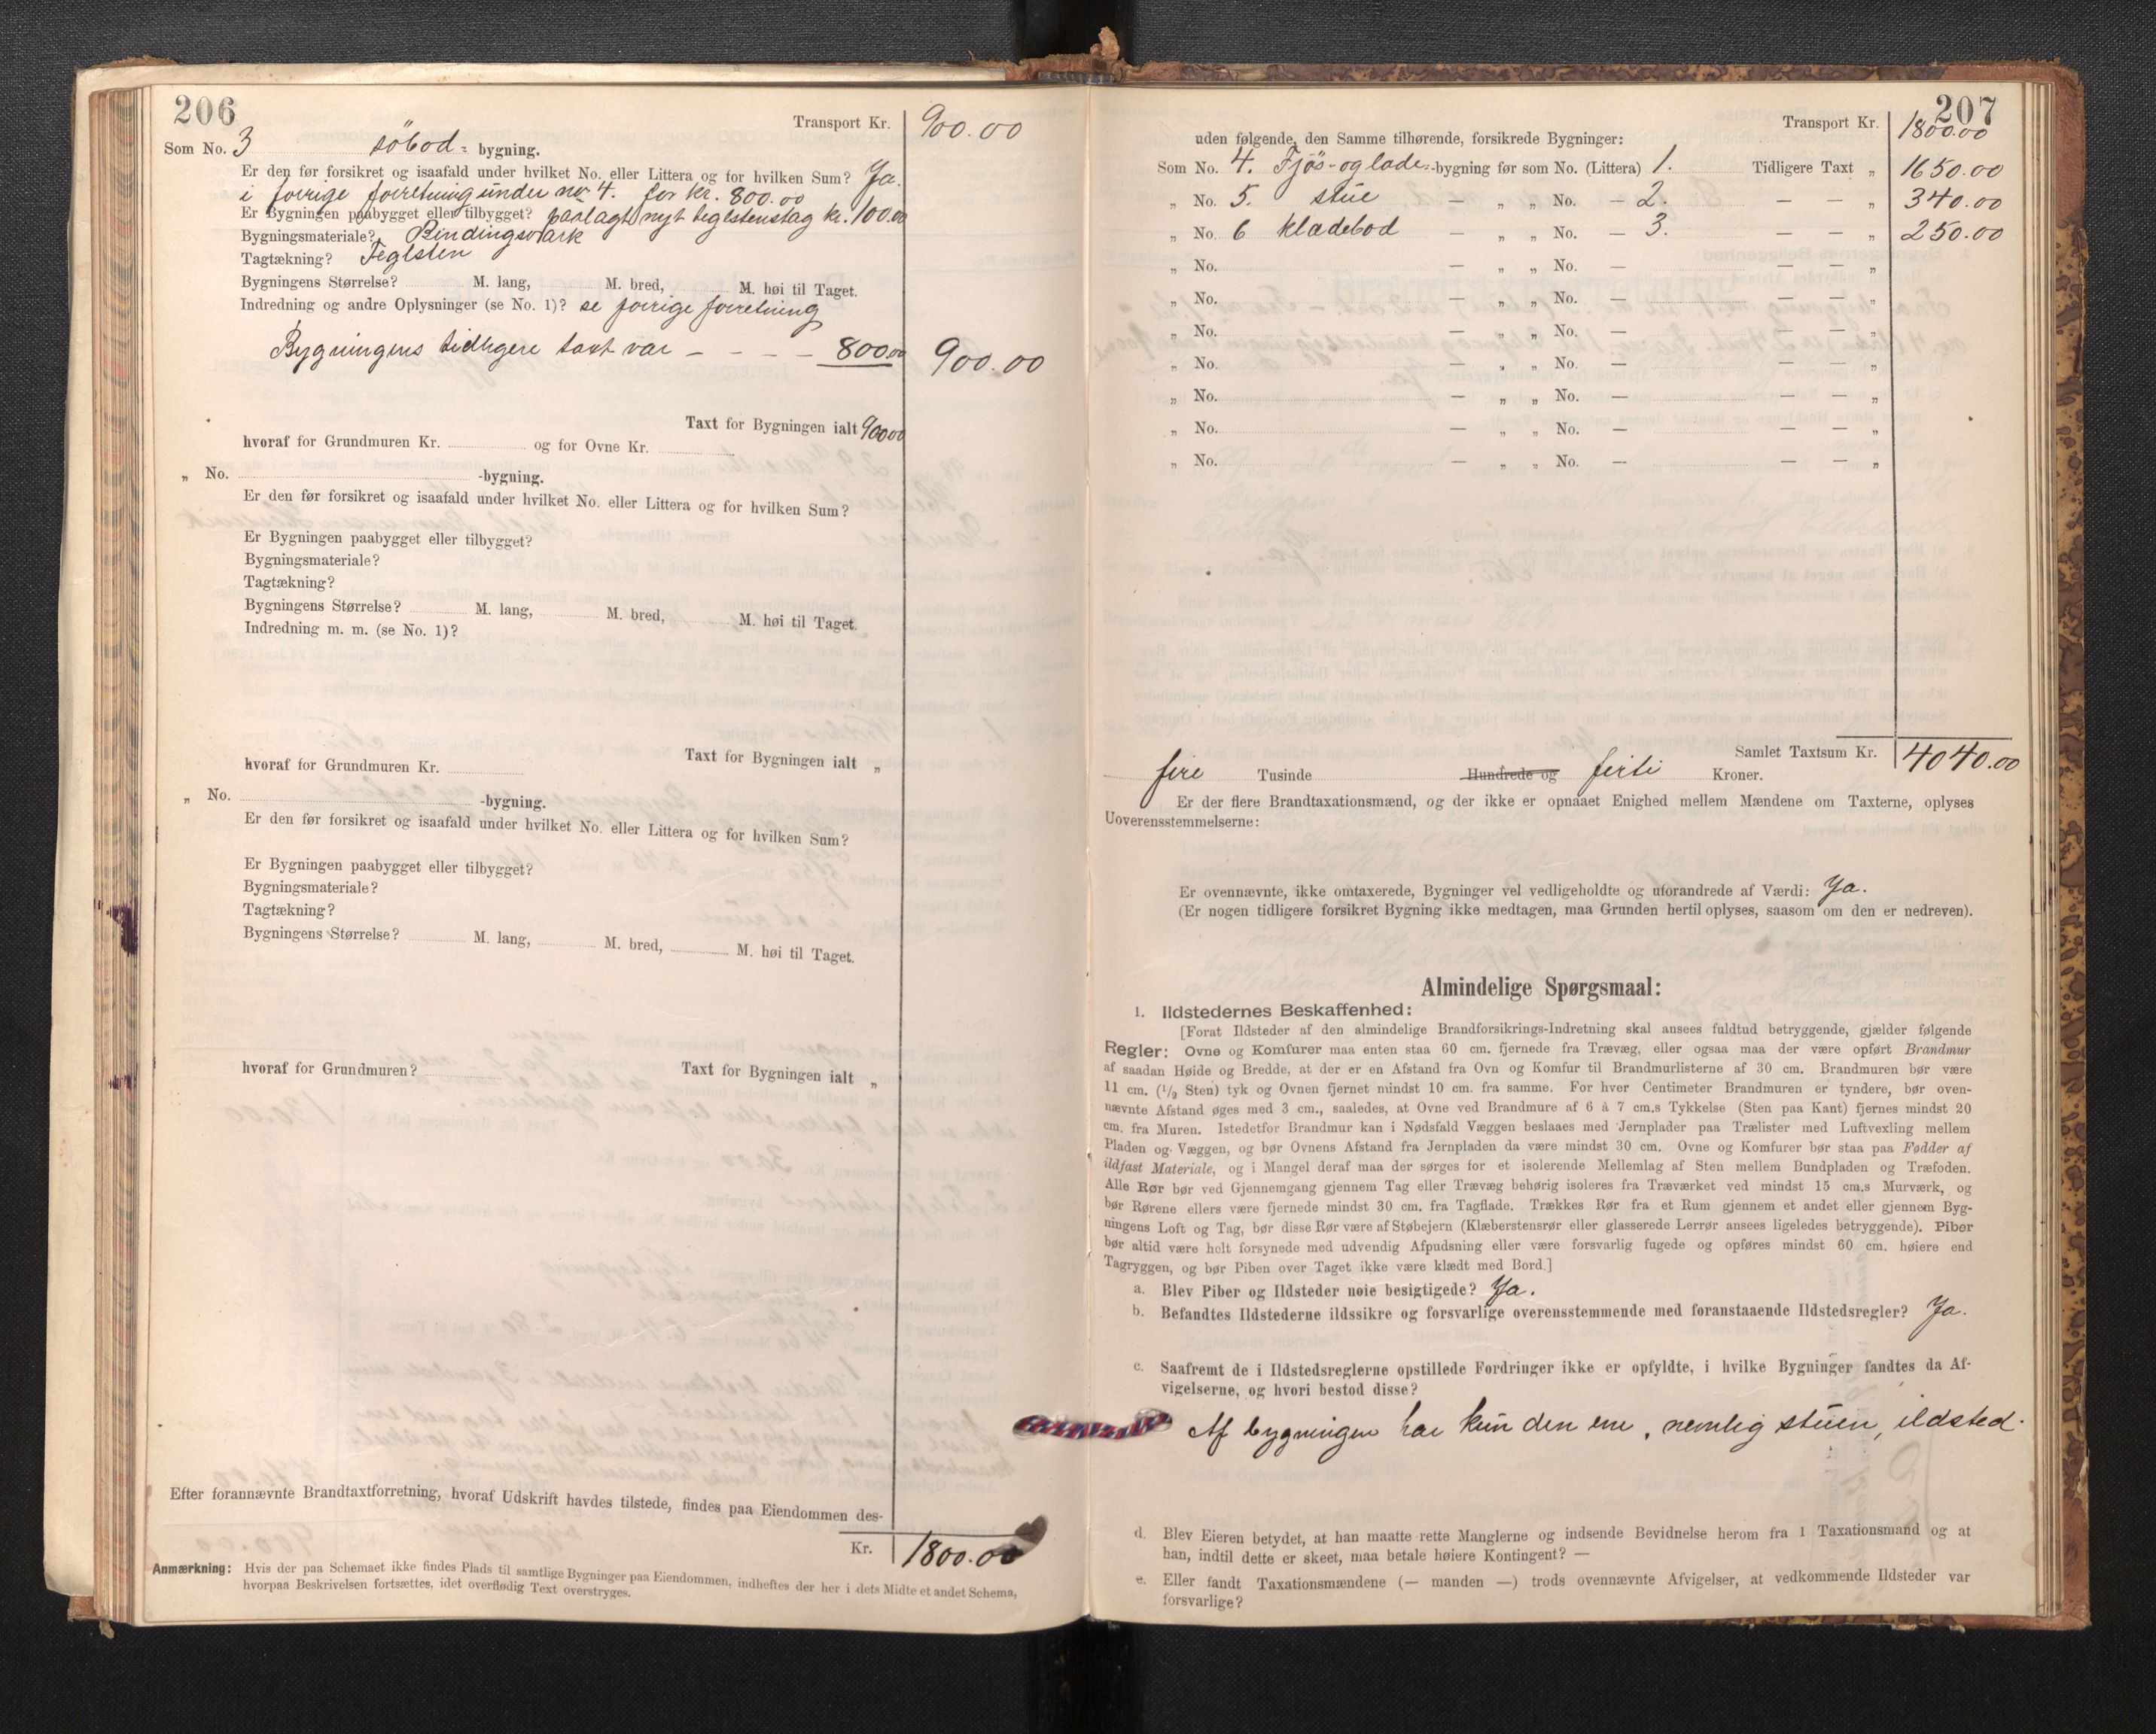 206
Transport Kr. 900.00
Som No. 3 söbod- bygning.
Er den før forsikret og isaafald under hvilket No. eller Littera og for hvilken Sum? Ja.
i forrige forretning under no 4. for kr. 800.00
Er Bygningen paabygget eller tilbygget? paalagt nyt teglstenstag kr. 100.00
Bygningsmateriale? Bindingsverk
Tagtækning? Teglsten
Bygningens Størrelse? M. lang, M. bred, M. høi til Taget.
Indredning og andre Oplysninger (se No. 1)? se forrige forretning
Bygningens tidligere taxt var - - - - 800.00 900.00
Taxt for Bygningen ialt 900.00
hvoraf for Grundmuren Kr. og for Ovne Kr.
„ No. -bygning.
Er den før forsikret og isaafald under hvilket No. eller Littera og for hvilken Sum?
Er Bygningen paabygget eller tilbygget?
Bygningsmateriale?
Tagtækning?
Bygningens Størrelse? M. lang, M. bred, M. høi til Taget.
Indredning m. m. (se No. 1)?
Taxt for Bygningen ialt „
hvoraf for Grundmuren Kr.
„ No. -bygning.
Er den før forsikret og isaafald under hvilket No. eller Littera og for hvilken Sum?
Er Bygningen paabygget eller tilbygget?
Bygningsmateriale?
Tagtækning?
Bygningens Størrelse? M. lang, M. bred, M. høi til Taget.
hvoraf for Grundmuren? Taxt for Bygningen ialt „
Efter forannævnte Brandtaxtforretning, hvoraf Udskrift havdes tilstede, findes paa Eiendommen des-
Kr. 1800.00
Anmærkning: Hvis der paa Schemaet ikke findes Plads til samtlige Bygninger paa Eiendommen, indheftes der her i dets Midte et andet Schema,
hvorpaa Beskrivelsen fortsættes, idet overflødig Text overstryges.
207
Transport Kr. 1800.00
uden følgende, den Samme tilhørende, forsikrede Bygninger:
Som No. 4. Fjös-og lade- -bygning før som No. (Littera) 1. Tidligere Taxt „ 1650.00
„ No. 5. stue — „ „ No. — 2. — — „ 340.00
„ No. 6 klædebod — „ „ No. — 3. — — „ 250.00
„ No. — „ „ No. — — — „
„ No. — „ „ No. — — — „
„ No. — „ „ No. — — — „
„ No. — „ „ No. — — — „
„ No. — „ „ No. — — — „
„ No. — „ „ No. — — — „
„ No. — „ „ No. — — — „
Samlet Taxtsum Kr. 4040.00
fire Tusinde Hundrede og firti Kroner.
Er der flere Brandtaxationsmænd, og der ikke er opnaaet Enighed mellem Mændene om Taxterne, oplyses
Uoverensstemmelserne:
Er ovennævnte, ikke omtaxerede, Bygninger vel vedligeholdte og uforandrede af Værdi: Ja.
(Er nogen tidligere forsikret Bygning ikke medtagen, maa Grunden hertil oplyses, saasom om den er nedreven).
Almindelige Spørgsmaal:
1. Ildstedernes Beskaffenhed:
[Forat Ildsteder af den almindelige Brandforsikrings-Indretning skal ansees fuldtud betryggende, gjælder følgende
Regler: Ovne og Komfurer maa enten staa 60 cm. fjernede fra Trævæg, eller ogsaa maa der være opført Brandmur
af saadan Høide og Bredde, at der er en Afstand fra Ovn og Komfur til Brandmurlisterne af 30 cm. Brandmuren bør være
11 cm. (1/2 Sten) tyk og Ovnen fjernet mindst 10 cm. fra samme. For hver Centimeter Brandmuren er tyndere, bør oven-
nævnte Afstand øges med 3 cm., saaledes, at Ovne ved Brandmure af 6 à 7 cm.s Tykkelse (Sten paa Kant) fjernes mindst 20
cm. fra Muren. Istedetfor Brandmur kan i Nødsfald Væggen beslaaes med Jernplader paa Trælister med Luftvexling mellem
Pladen og Væggen, og bør Ovnens Afstand fra Jernpladen da være mindst 30 cm. Ovne og Komfurer bør staa paa Fødder af
ildfast Materiale, og i Mangel deraf maa der sørges for et isolerende Mellemlag af Sten mellem Bundpladen og Træfoden.
Alle Rør bør ved Gjennemgang gjennem Tag eller Trævæg behørig isoleres fra Træværket ved mindst 15 cm.s Murværk, og
bør Rørene ellers være fjernede mindst 30 cm. fra Tagflade. Trækkes Rør fra et Rum gjennem et andet eller gjennem Byg-
ningens Loft og Tag, bør disse Rør være af Støbejern (Klæberstensrør eller glasserede Lerrør ansees ligeledes betryggende). Piber
bør altid være helt forsynede med udvendig Afpudsning eller være forsvarlig fugede og opføres mindst 60 cm. høiere end
Tagryggen, og bør Piben over Taget ikke være klædt med Bord.]
a. Blev Piber og Ildsteder nøie besigtigede? Ja.
b. Befandtes Ildstederne ildssikre og forsvarlige overensstemmende med foranstaaende Ildstedsregler? Ja.
c. Saafremt de i Ildstedsreglerne opstillede Fordringer ikke er opfyldte, i hvilke Bygninger fandtes da Af-
vigelserne, og hvori bestod disse?
Af bygningen har kun den ene, nemlig stuen, ildsted.
d. Blev Eieren betydet, at han maatte rette Manglerne og indsende Bevidnelse herom fra 1 Taxationsmand og at
han, indtil dette er skeet, maa betale høiere Kontingent? —
e. Eller fandt Taxationsmændene (— manden —) trods ovennævnte Afvigelser, at vedkommende Ildsteder var
forsvarlige?